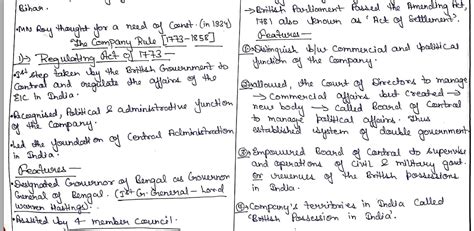 Bihar.
• MN Roy thought for a need of Const. (in 1934)
"The Company Rule [1773-1858]
1) → Regulating Act of 1773 -
• 1st step taken by the British Government to
Control and regulate the affairs of the
EIC in India.
• Recognised, Political & administrative function
of the Company.
• Led the foundation of Central Administration
in India.
(Features -
• Designated Governor of Bengal as Governor
General of Bengal. (1st G. General - Lord
Warren Hastings).
• Assisted by 4 member council.
→ British Parliament Passed the Amending Act,
1781 also known as 'Act of Settlement'.
Features -
① Distinguish b/w Commercial and political
function of the Company.
② allowed, the Court of Directors to manage
→ Commercial affairs but created →
new body → called Board of Control
to manage political affairs. Thus
established system of double government
③ Empowered Board of Control to supervise
and operations of civil & military govt.
or revenues of the British possessions
in India.
④ Company's territories in India called
'British Possession in India'.